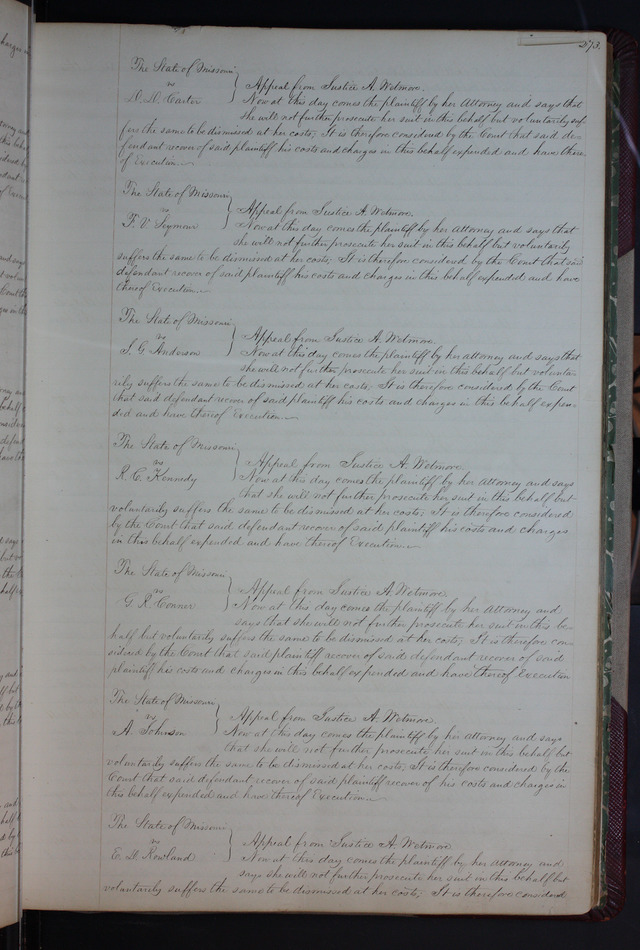 273.
The State of Missouri
vs
D. D. Carter
Appeal from Justice A. Wetmore.
Now at this day comes the plaintiff by her Attorney and says that
she will not further prosecute her suit in this behalf but voluntarily suf-
fers the same to be dismissed at her costs; It is therefore considered by the Court that said de-
fendant recover of said plaintiff his costs and charges in this behalf expended and have there
of Execution
The State of Missouri
vs
T. V. Seymour
Appeal from Justice A. Wetmore.
Now at this day comes the plaintiff by her attorney and says that
she will not further prosecute her suit in this behalf but voluntarily
suffers the same to be dismissed at her costs; It is therefore considered by the Court that said
defendant recover of said plaintiff his costs and charges in this behalf expended and have
thereof Execution
The State of Missouri
vs
S. G. Anderson
Appeal from Justice A. Wetmore.
Now at this day comes the plaintiff by her attorney and says that
she will not further prosecute her suit in this behalf but volunta-
rily suffers the same to be dismissed at her costs; It is therefore considered by the Court
that said defendant recover of said plaintiff his costs and charges in this behalf expen-
ded and have thereof Execution
The State of Missouri
vs
R. C. Kennedy
Appeal from Justice A. Wetmore
Now at this day comes the plaintiff by her attorney and says
that she will not further prosecute her suit in this behalf but
voluntarily suffers the same to be dismissed at her costs; It is therefore considered
by the Court that said defendant recover of said plaintiff his costs and charges
in this behalf expended and have thereof Execution
The State of Missouri
vs
G. R. Conner
Appeal from Justice A. Wetmore.
Now at this day comes the plaintiff by her Attorney and
says that she will not further prosecute her suit in this be-
half but voluntarily suffers the same to be dismissed at her costs; It is therefore con-
sidered by the Court that said plaintiff recover of said defendant recover of said
plaintiff his costs and charges in this behalf expended and have thereof Execution
The State of Missouri
vs
A. Johnson
Appeal from Justice A. Wetmore.
Now at this day comes the plaintiff by her attorney and says
that she will not further prosecute her suit in this behalf but
voluntarily suffers the same to be dismissed at her costs; It is therefore considered by the
Court that said defendant recover of said plaintiff recover of his costs and charges in
this behalf expended and have thereof Execution
The State of Missouri
vs
E. D. Rowland
Appeal from Justice A. Wetmore
Now at this day comes the plaintiff by her attorney and
says she will not further prosecute her suit in this behalf but
voluntarily suffers the same to be dismissed at her costs; It is therefore considered